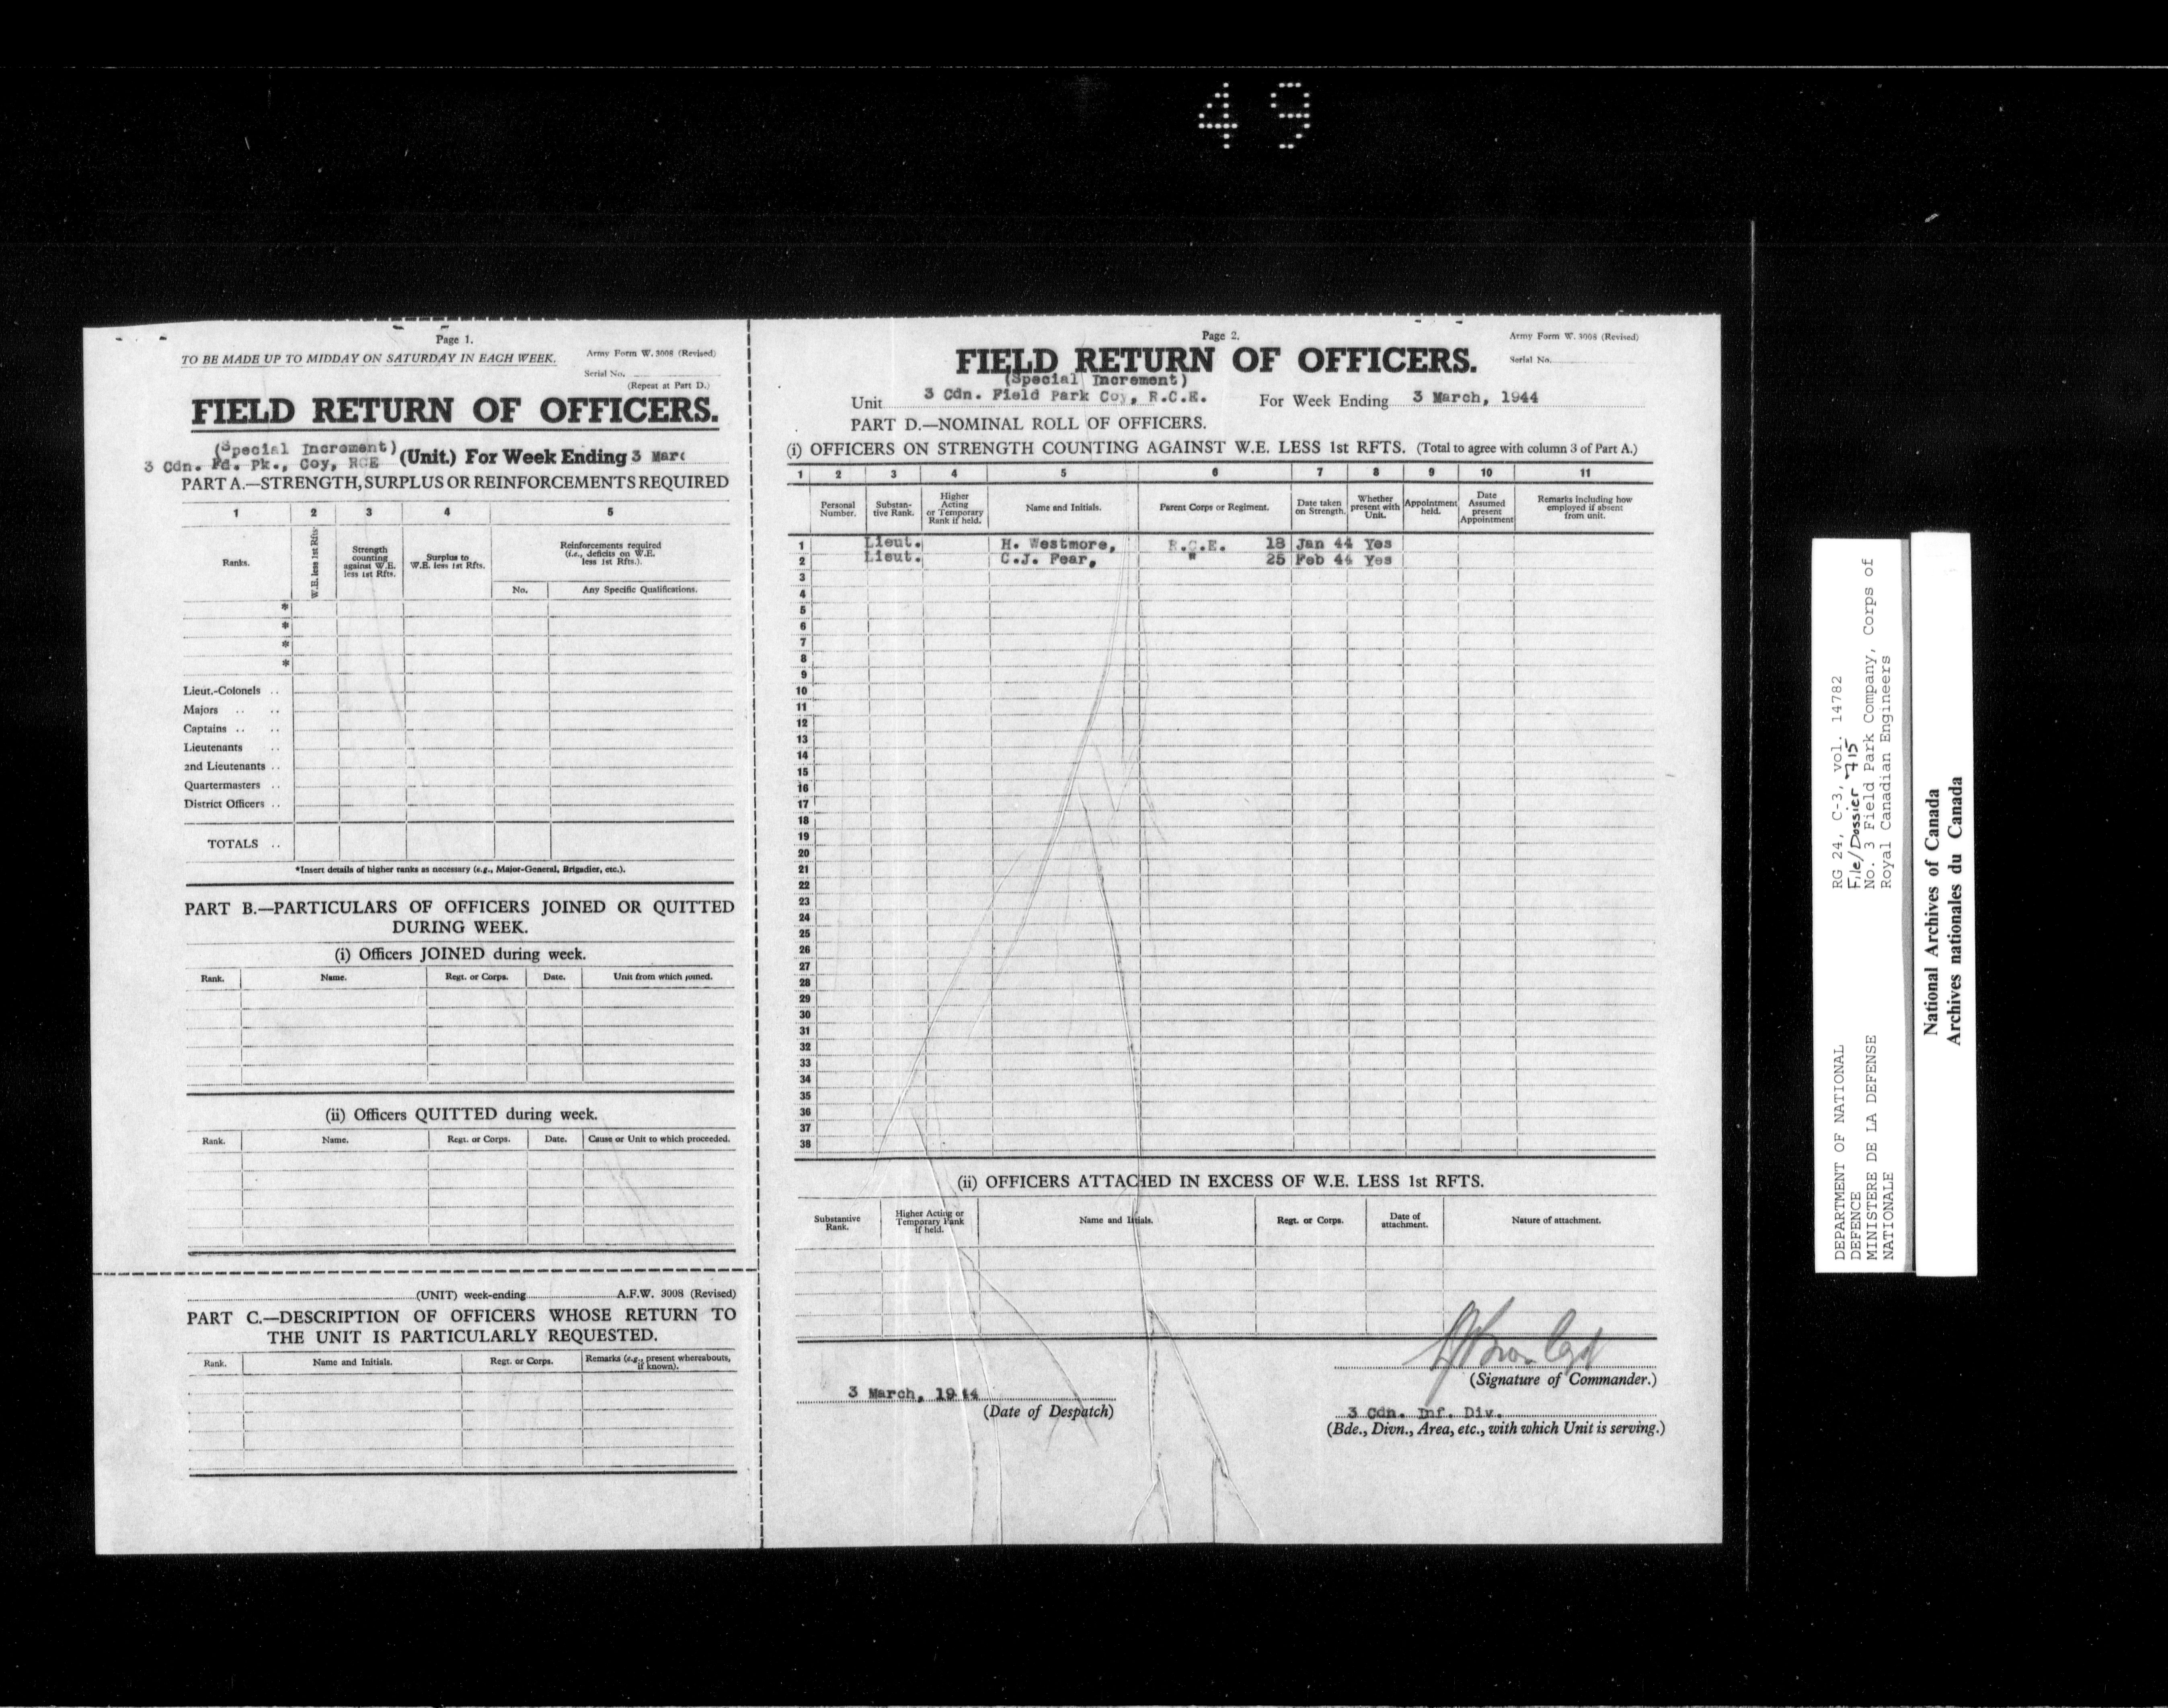 49
Page 1.
TO BE MADE UP TO MIDDAY ON SATURDAY IN EACH WEEK.
Army Form W. 3008 (Revised)
Serial No.
(Repeat at Part D.)
FIELD RETURN OF OFFICERS.
(Special Increment)
3 Cdn. Fd. Pk., Coy, RCE (Unit.) For Week Ending 3 Marc
PART A.—STRENGTH, SURPLUS OR REINFORCEMENTS REQUIRED
1 2 3 4 5
Ranks.
W.E. less 1st Rfts.
Strength counting against W.E. less 1st Rfts.
Surplus to W.E. less 1st Rfts.
Reinforcements required (i.e., deficits on W.E. less 1st Rfts.).
No. Any Specific Qualifications.
*
*
*
*
Lieut.-Colonels ..
Majors .. ..
Captains .. ..
Lieutenants ..
2nd Lieutenants ..
Quartermasters ..
District Officers ..
TOTALS ..
*Insert details of higher ranks as necessary (e.g., Major-General, Brigadier, etc.).
PART B.—PARTICULARS OF OFFICERS JOINED OR QUITTED
DURING WEEK.
(i) Officers JOINED during week.
Rank. Name. Regt. or Corps. Date. Unit from which joined.
(ii) Officers QUITTED during week.
Rank. Name. Regt. or Corps. Date. Cause or Unit to which proceeded.
(UNIT) week-ending A.F.W. 3008 (Revised)
PART C.—DESCRIPTION OF OFFICERS WHOSE RETURN TO
THE UNIT IS PARTICULARLY REQUESTED.
Rank. Name and Initials. Regt. or Corps. Remarks (e.g., present whereabouts, if known).
Page 2.
Army Form W. 3008 (Revised)
Serial No.
FIELD RETURN OF OFFICERS.
(Special Increment)
Unit 3 Cdn. Field Park Coy, R.C.E. For Week Ending 3 March, 1944
PART D.—NOMINAL ROLL OF OFFICERS.
(i) OFFICERS ON STRENGTH COUNTING AGAINST W.E. LESS 1st RFTS. (Total to agree with column 3 of Part A.)
1 2 3 4 5 6 7 8 9 10 11
Personal Number.
Substan-tive Rank.
Higher Acting or Temporary Rank if held.
Name and Initials.
Parent Corps or Regiment.
Date taken on Strength.
Whether present with Unit.
Appointment held.
Date Assumed present Appointment
Remarks including how employed if absent from unit.
1 Lieut. H. Westmore, R.C.E. 18 Jan 44 Yes
2 Lieut. C.J. Fear, " 25 Feb 44 Yes
3
4
5
6
7
8
9
10
11
12
13
14
15
16
17
18
19
20
21
22
23
24
25
26
27
28
29
30
31
32
33
34
35
36
37
38
(ii) OFFICERS ATTACHED IN EXCESS OF W.E. LESS 1st RFTS.
Substantive Rank.
Higher Acting or Temporary Rank if held.
Name and Initials.
Regt. or Corps.
Date of attachment.
Nature of attachment.
(Signature of Commander.)
3 March, 1944
(Date of Despatch)
3 Cdn. Inf. Div.
(Bde., Divn., Area, etc., with which Unit is serving.)
DEPARTMENT OF NATIONAL
DEFENCE
MINISTERE DE LA DEFENSE
NATIONALE
RG 24, C-3, vol. 14782
File/Dossier 715
No. 3 Field Park Company, Corps of
Royal Canadian Engineers
National Archives of Canada
Archives nationales du Canada